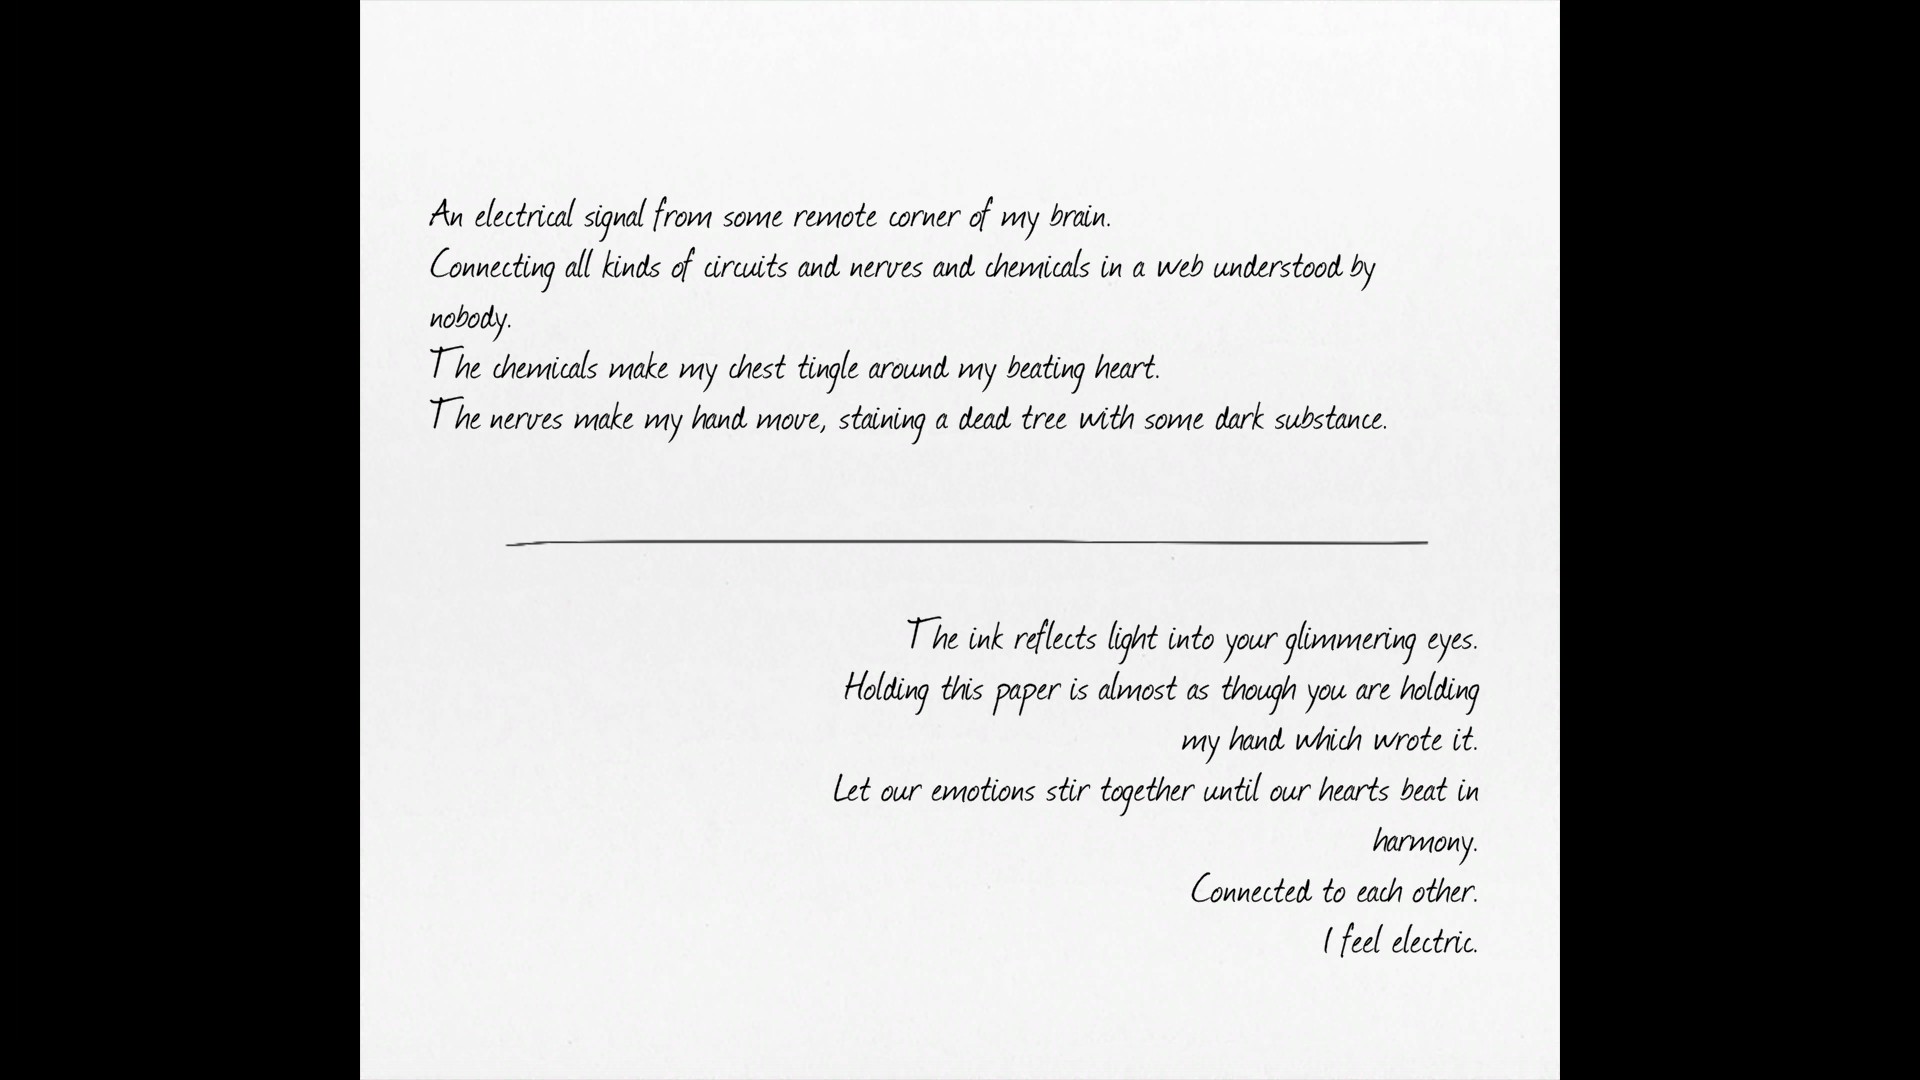 An electrical signal from some remote corner of my brain.
Connecting all kinds of circuits and nerves and chemicals in a web understood by
nobody.
The chemicals make my chest tingle around my beating heart.
The nerves make my hand move, staining a dead tree with some dark substance.
The ink reflects light into your glimmering eyes.
Holding this paper is almost as though you are holding
my hand which wrote it.
Let our emotions stir together until our hearts beat in
harmony.
Connected to each other.
I feel electric.